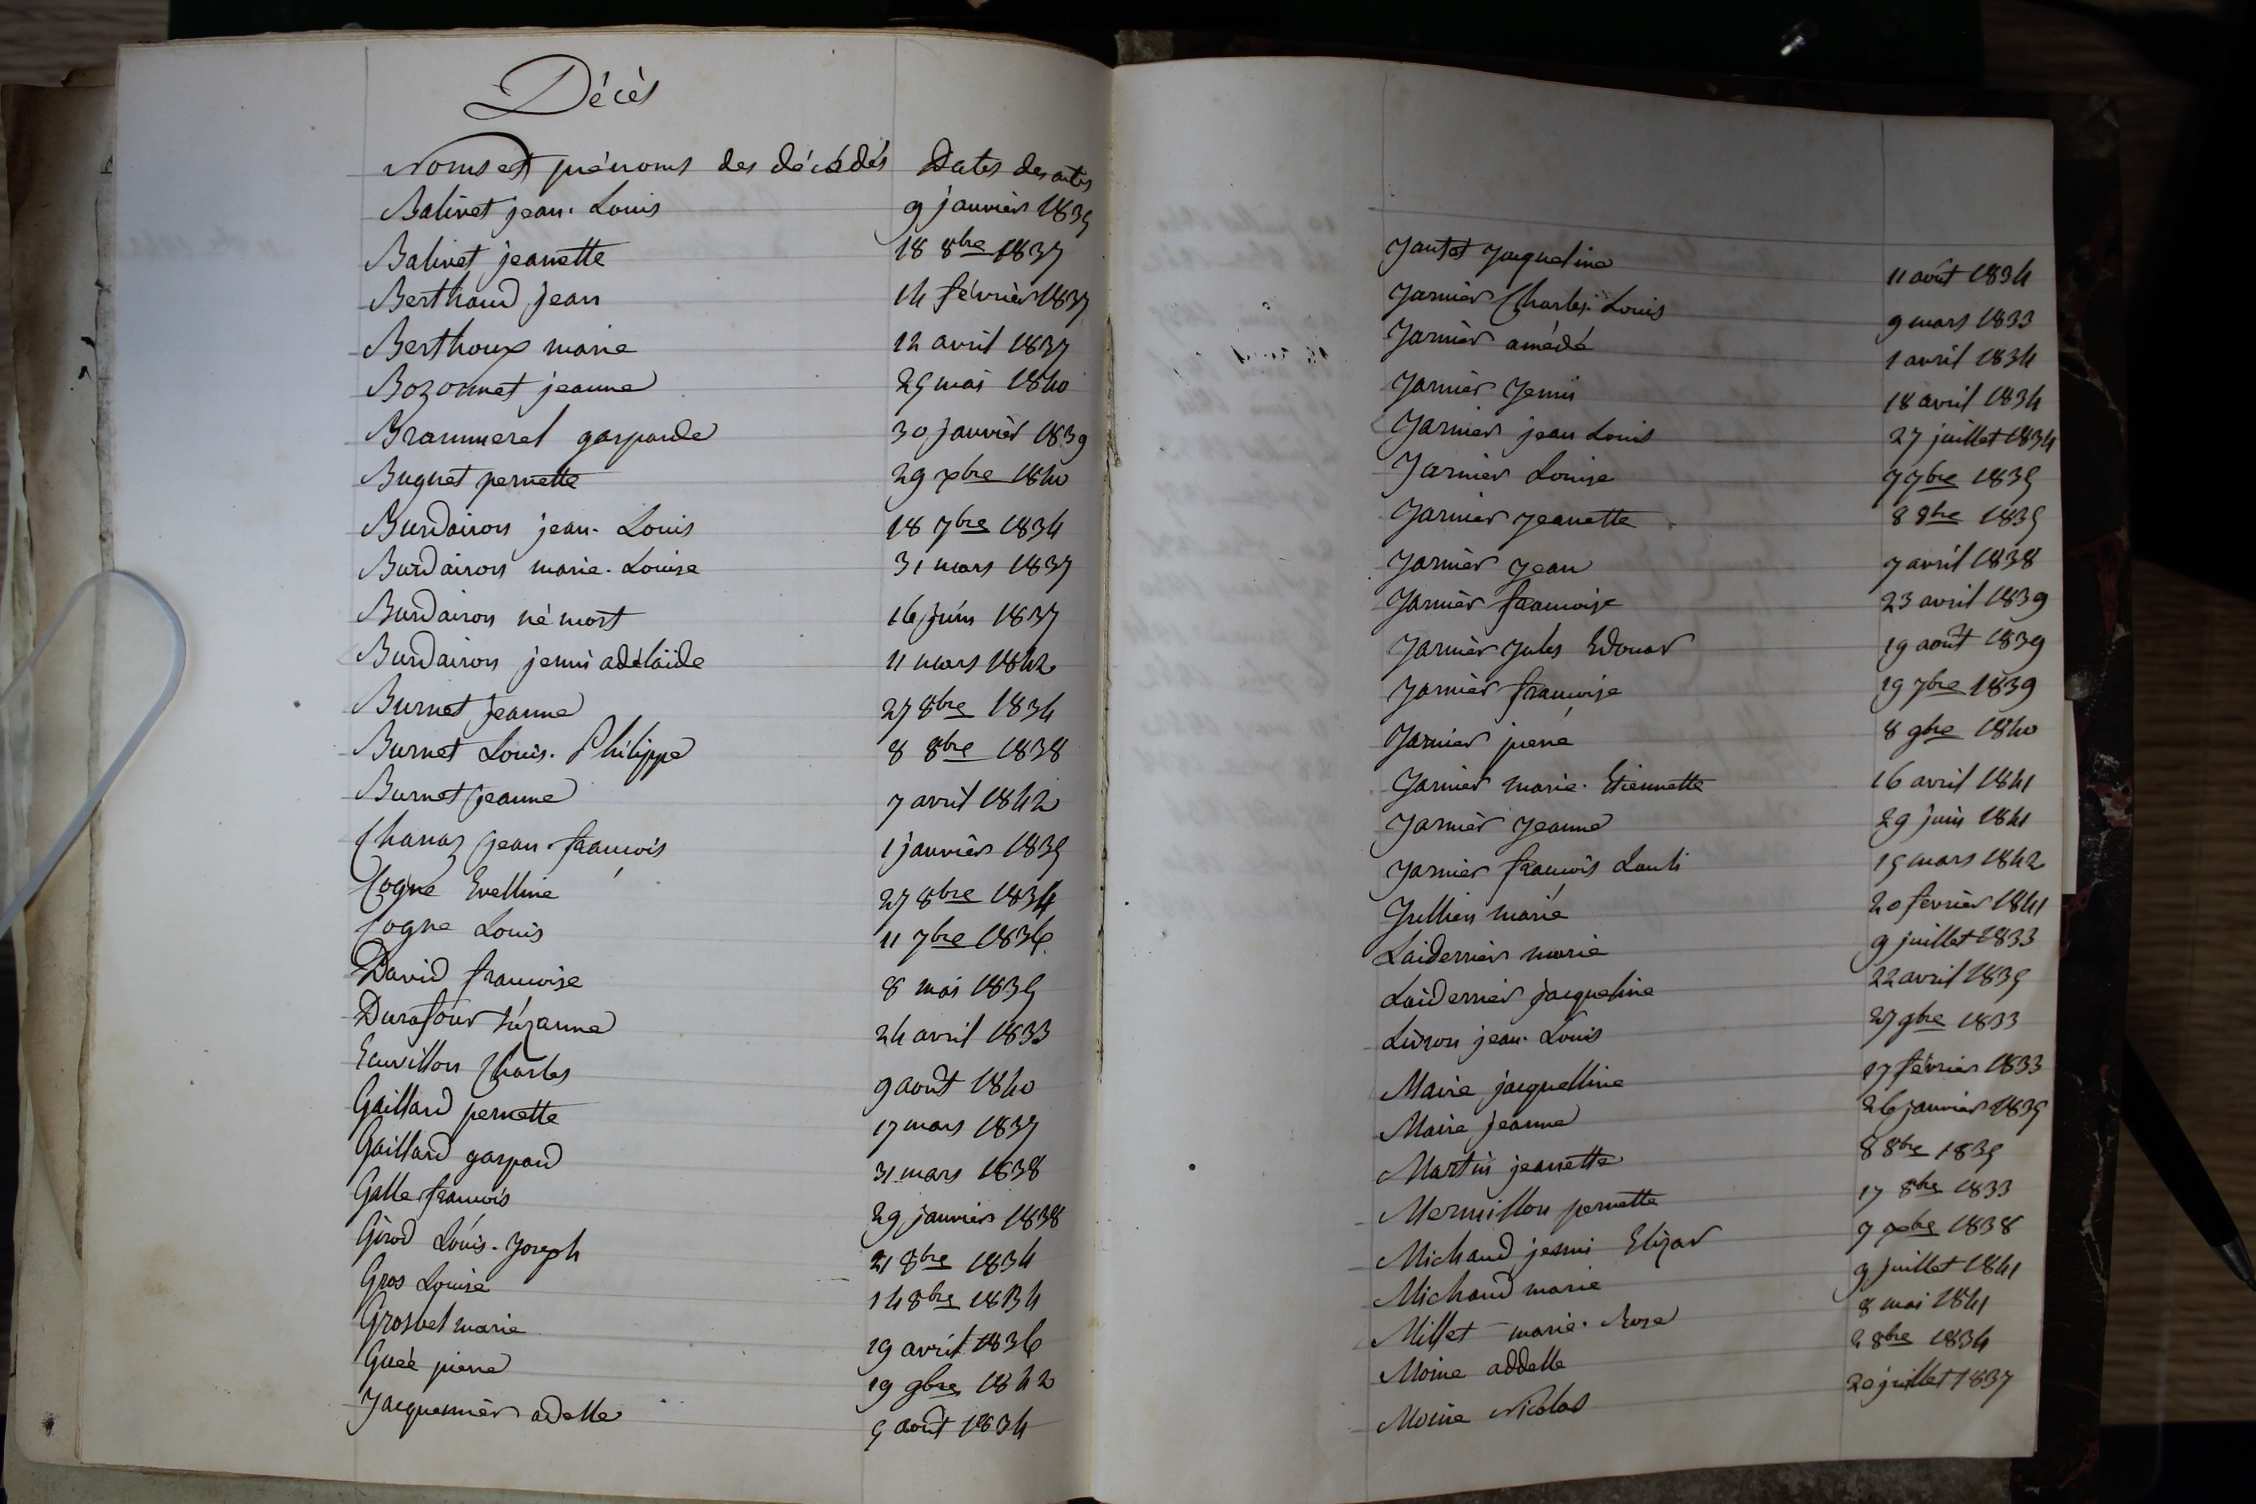 Décès
Noms et prénoms des décédés Dates des actes
Balivet jean-Louis 9 janvier 1835
Balivet jeanette 18 8bre 1837
Berthaud jean 14 février 1837
Berthoux marie 12 avril 1837
Bozonnet jeanne 25 mai 1840
Brammerel gasparde 30 janvier 1839
Buguet pernette 29 xbre 1840
Burdairon jean-Louis 18 7bre 1834
Burdairon marie-Louise 31 mars 1837
Burdairon né mort 16 juin 1837
Burdairon jenni adélaïde 11 mars 1842
Burnet jeanne 27 8bre 1834
Burnet Louis-Philippe 8 8bre 1838
Burnet jeanne 7 avril 1842
Chanaz jean-francois 1 janvier 1835
Cogne Evelline 27 8bre 1834
Cogne Louis 11 7bre 1836
David francoise 8 mai 1835
Durafour suzanne 24 avril 1833
Ecuvillon Charles 9 août 1840
Gaillard pernette 17 mars 1837
Gaillard gaspard 31 mars 1838
Galle francois 29 janvier 1838
Girod Louis-Joseph 21 8bre 1834
Gros Louise 14 8bre 1834
Grosbel marie 19 avril 1836
Guée pierre 19 9bre 1842
Jacquemier adelle 5 août 1834
Jantet Jacqueline 11 août 1834
Jarnier Charles-Louis 9 mars 1833
Jarnier amédé 1 avril 1834
Jarnier Jenni 18 avril 1834
Jarnier jean Louis 27 juillet 1834
Jarnier Louise 7 7bre 1835
Jarnier Jeanette 8 8bre 1835
Jarnier Jean 7 avril 1838
Jarnier francoise 23 avril 1839
Jarnier Jules Edouar 19 août 1839
Jarnier francoise 19 7bre 1839
Jarnier pierre 8 9bre 1840
Jarnier marie-Etiennette 16 avril 1841
Jarnier Jeanne 29 juin 1841
Jarnier francois 15 mars 1842
Jullien marie 20 février 1841
Laidernier marie 9 juillet 1833
Laidernier jacqueline 22 avril 1835
Livron jean-Louis 27 9bre 1833
Maire jacquelline 17 février 1833
Maire jeanne 26 janvier 1835
Martin jeanette 8 8bre 1835
Mermillon pernette 17 8bre 1833
Michaud jenni Elizar 7 xbre 1838
Michaud marie 9 juillet 1841
Millet marie-Rose 8 mai 1841
Moine addelle 8bre 1834
Moine Nicolas 20 juillet 1837